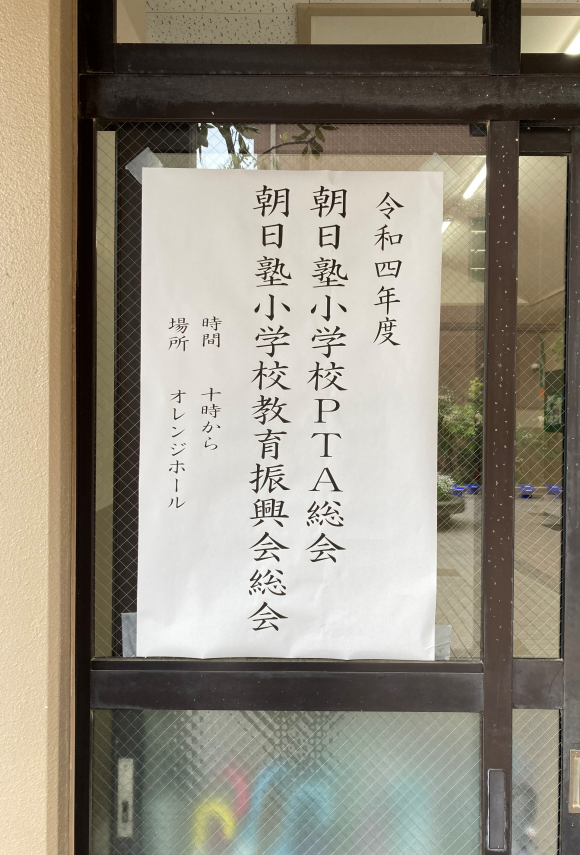 令和四年度
朝日塾小学校PTA総会
朝日塾小学校教育振興会総会
時間　十時から
場所　オレンジホール